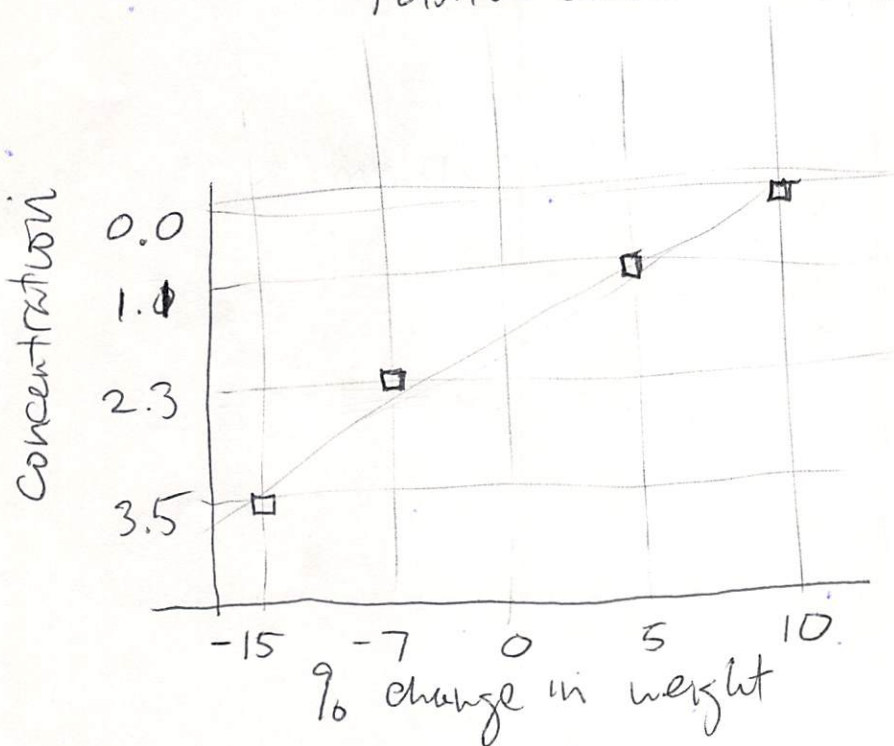 Concentration
0.0
1.0
2.3
3.5
-15 -7 0 5 10
% change in weight